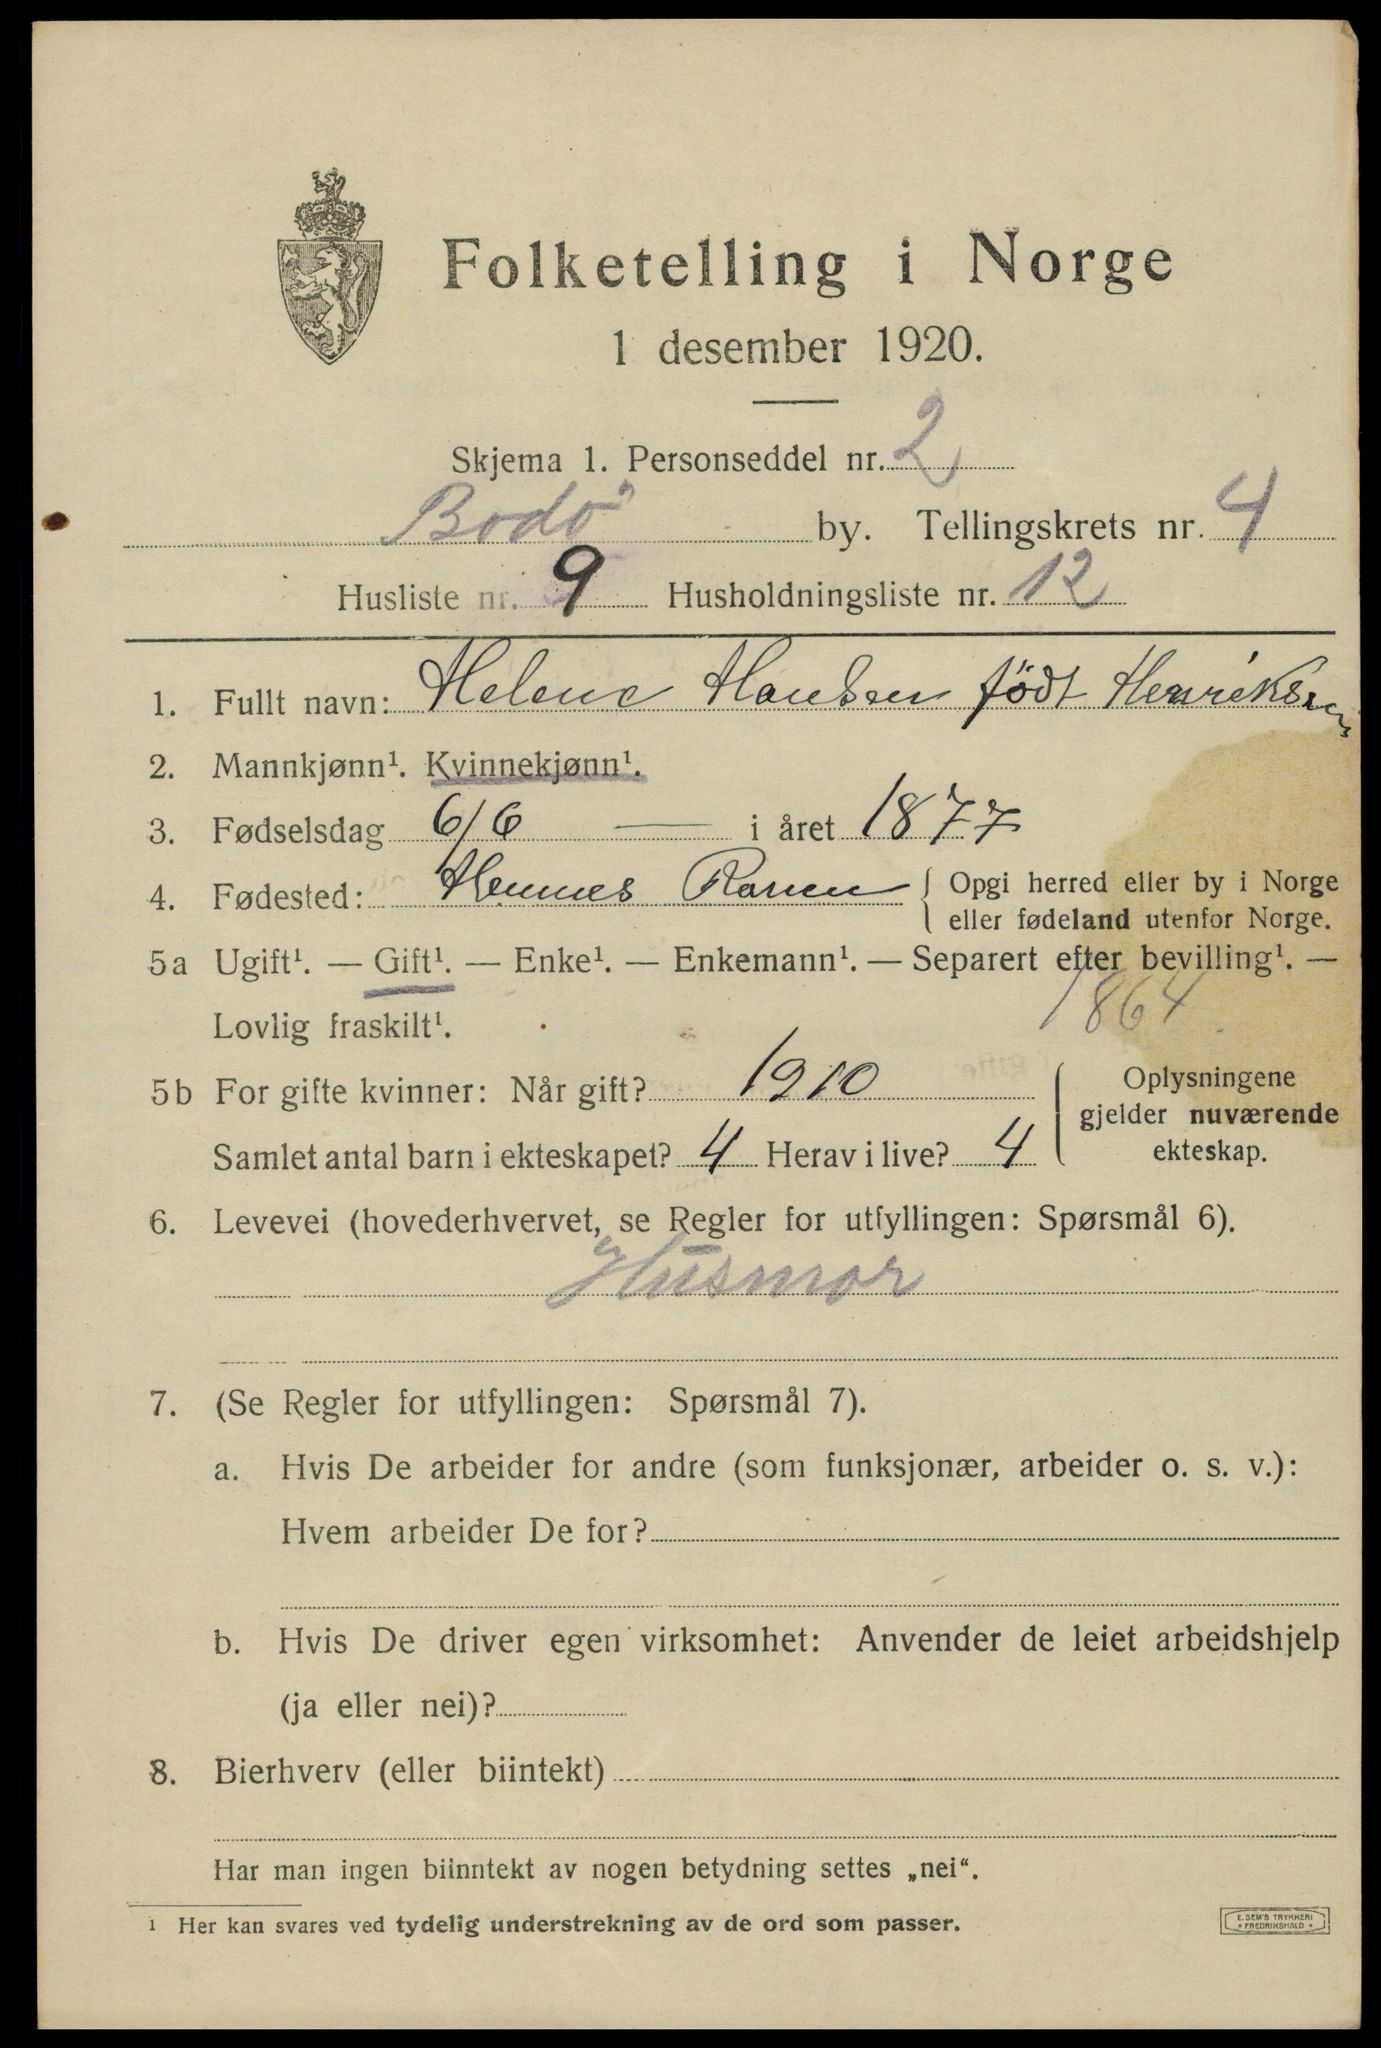 Folketelling i Norge
1 desember 1920.
Skjema 1. Personseddel nr. 2
Bodö by. Tellingskrets nr. 4
Husliste nr. 9 Husholdningsliste nr. 12
1. Fullt navn: Helene Hansen födt Henriksen
2. Mannkjønn¹. Kvinnekjønn¹.
3. Fødselsdag 6/6 — i året 1877
4. Fødested: Hemnes Ranen { Opgi herred eller by i Norge
eller fødeland utenfor Norge.
5a Ugift¹. — Gift¹. — Enke¹. — Enkemann¹. — Separert efter bevilling¹. —
Lovlig fraskilt¹. 1864
5b For gifte kvinner: Når gift? 1910
Samlet antal barn i ekteskapet? 4 Herav i live? 4
Oplysningene
gjelder nuværende
ekteskap.
6. Levevei (hovederhvervet, se Regler for utfyllingen: Spørsmål 6).
Husmor
7. (Se Regler for utfyllingen: Spørsmål 7).
a. Hvis De arbeider for andre (som funksjonær, arbeider o. s. v.):
Hvem arbeider De for?
b. Hvis De driver egen virksomhet: Anvender de leiet arbeidshjelp
(ja eller nei)?
8. Bierhverv (eller biintekt)
Har man ingen biinntekt av nogen betydning settes „nei“.
1 Her kan svares ved tydelig understrekning av de ord som passer.
E. SEM'S TRYKKERI
FREDRIKSHALD